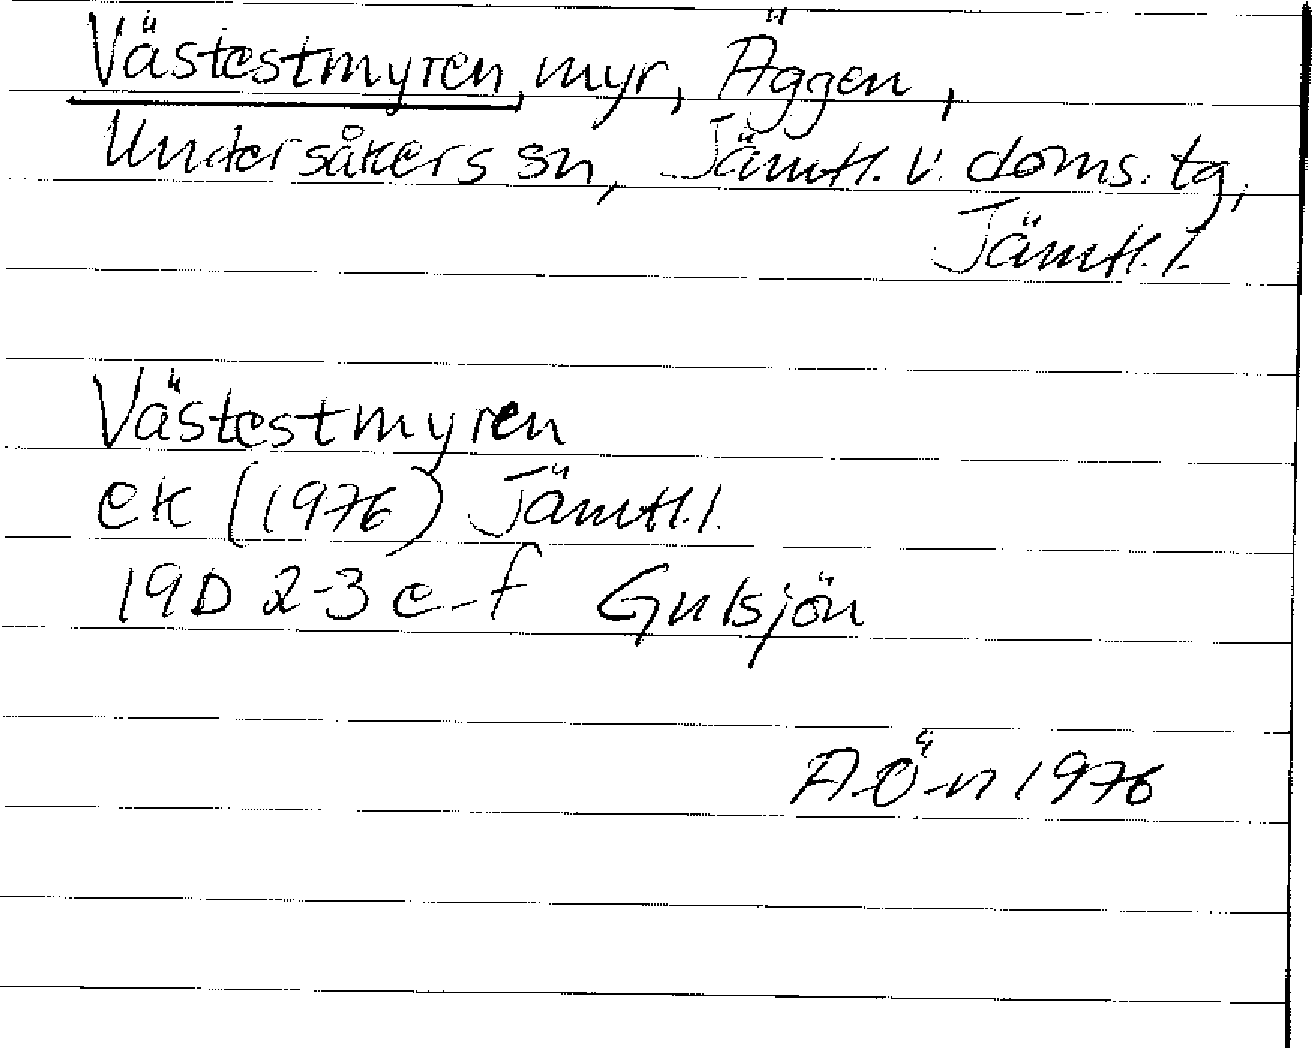 Västestmyren, myr, Äggen,
Undersåkers sn, Jämtl. v. doms. tg,
Jämtl. l.
Västestmyren
ek (1976) Jämtl. l.
19D 2-3 e-f Gulsjön
A-Ö-n 1976